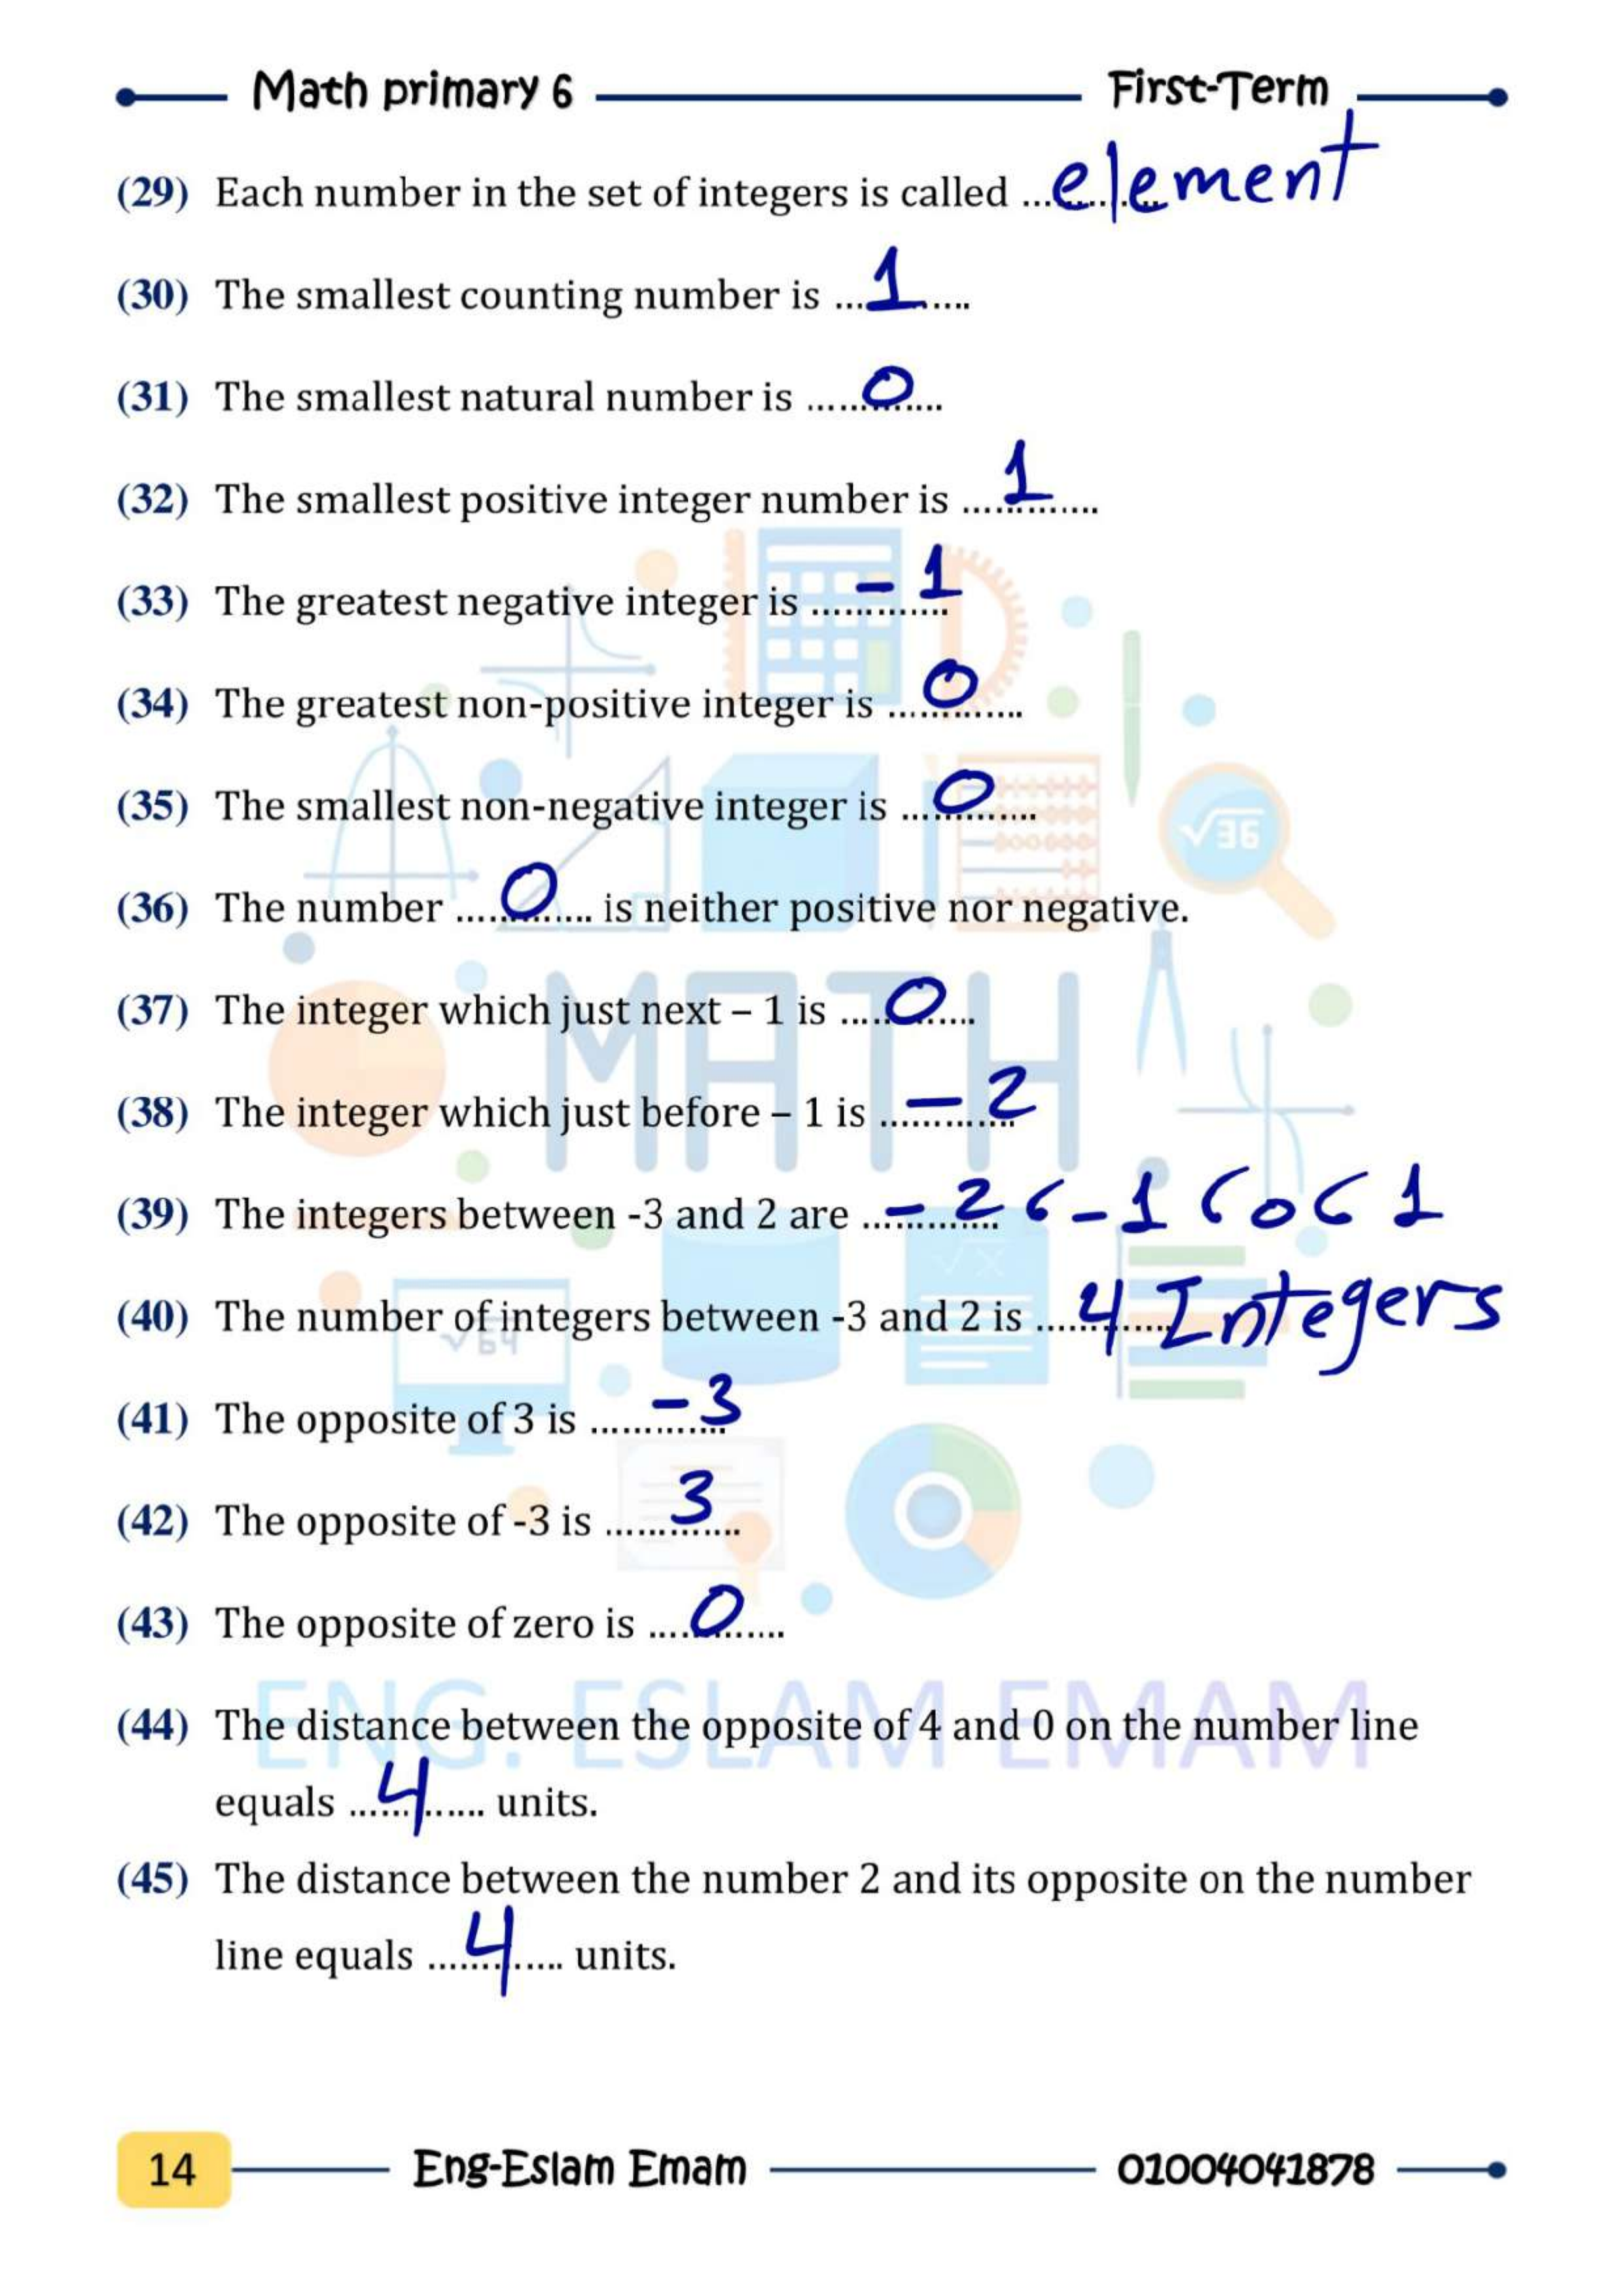 Math primary 6 First-Term
(29) Each number in the set of integers is called ... element
(30) The smallest counting number is ... 1 ...
(31) The smallest natural number is ... 0 ...
(32) The smallest positive integer number is ... 1 ...
(33) The greatest negative integer is ... - 1
(34) The greatest non-positive integer is ... 0 ...
(35) The smallest non-negative integer is ... 0 ...
(36) The number ... 0 ... is neither positive nor negative.
(37) The integer which just next – 1 is ... 0 ...
(38) The integer which just before – 1 is ... - 2
(39) The integers between -3 and 2 are ... - 2 ، - 1 ، 0 ، 1
(40) The number of integers between -3 and 2 is ... 4 Integers
(41) The opposite of 3 is ... -3
(42) The opposite of -3 is ... 3 ...
(43) The opposite of zero is ... 0 ...
(44) The distance between the opposite of 4 and 0 on the number line
equals ... 4 ... units.
(45) The distance between the number 2 and its opposite on the number
line equals ... 4 ... units.
√36
MATH
√x
√64
ENG. ESLAM EMAM
14 Eng-Eslam Emam 01004041878